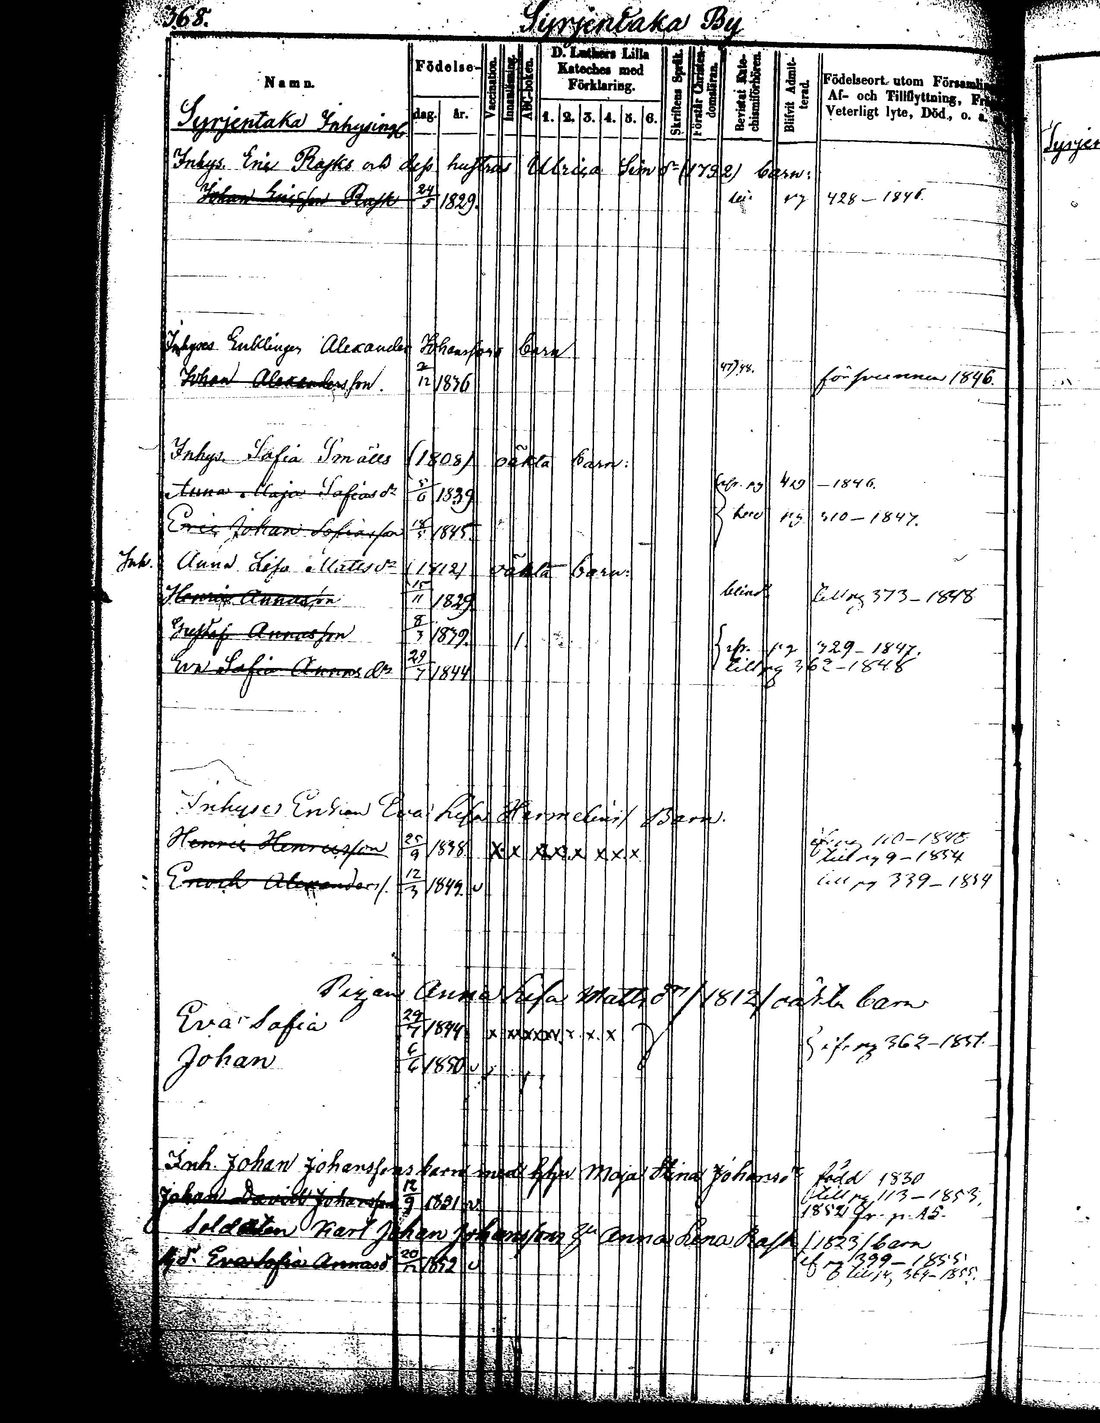 368.
Syrjentaka By
Namn.
Födelse-
dag. år.
Vaccination.
Innanläsning.
ABC-boken.
D. Luthers Lilla
Kateches med
Förklaring.
1. 2. 3. 4. 5. 6.
Skriftens Språk.
Förstår Christendomsläran.
Bevistat Kate-
chismiförhören.
Blifvit Admit-
terad.
Födelseort utom Församlin
Af- och Tillflyttning, Fr
Veterligt lyte, Död, o. a.
Syrjentaka Inhysingb
Syrjen
Inhys. Eric Rasks och dess hustrus Ulrica Simsdr (1792) barn:
Johan Ericsson Rask 24/5 1829. pg 428–1846.
Inhyses Enklinges Alexander Johanssons barn
Johan Alexandersson. 2/12 1836 47/48. försvunnen 1846.
Inhys. Sofia Smälls (1808) oäkta barn:
Anna Maja Sofiasdr 5/6 1839 ifr. pg 429 –1846.
Eric Johan Sofiasson 18/5 1845. pg 310–1847.
Inh. Anna Lisa Mattsdr (1812) oäkta barn:
Henric Annasson 15/11 1829 blind till pg 373–1848
Gustaf Annasson 8/3 1839. ifr. pg 329–1847.
Eva Sofia Annasdr 29/7 1844 till pg 362–1848
Inhyses Enkan Eva Lisa Hermelins/ Barn.
Henric Henricsson 25/9 1838 x x x x x x x x ifr pg 110–1848
till pg 9–1854
Enoch Alexanders/. 12/3 1849. v till pg 339–1854
Pigan Anna Lisa Matts dr /1812/ oäkta barn
Eva Sofia 29/7 1844 x x x x x x x x x
Johan 6/6 1850 v ifr pg 362–1851.
Inh. Johan Johanssons barn med h. Maja Stina Johansdr född 1830
Johan David Johansson 12/9 1851 v. till pg 113–1853,
1852 fr. p. 15.
Soldaten Karl Johan Johanssons h Anna Lena Rask /1823/ barn
Eva Sofia Annasd 20/12 1852 v if pg 399–1855
till pg 364–1855.